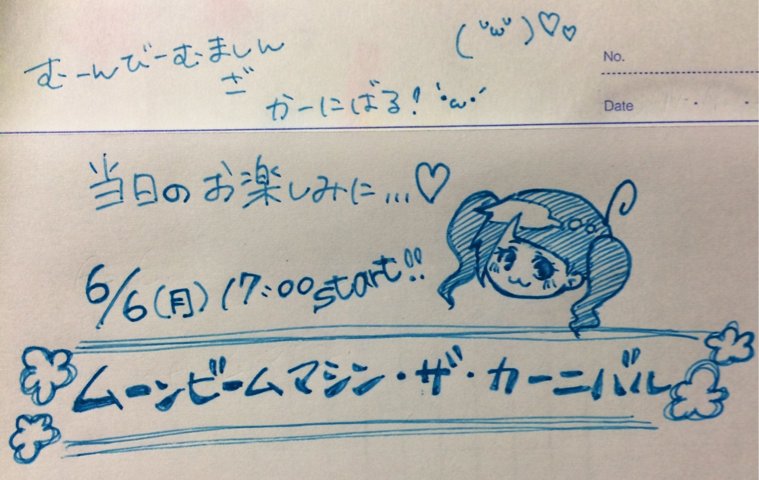 (˘ω˘)♡♡
むーんびーむましん
ざ
かーにばる! •ω•
No.
Date
当日のお楽しみに...♡
6/6(月)17:00start!!
ムーンビームマシン・ザ・カーニバル